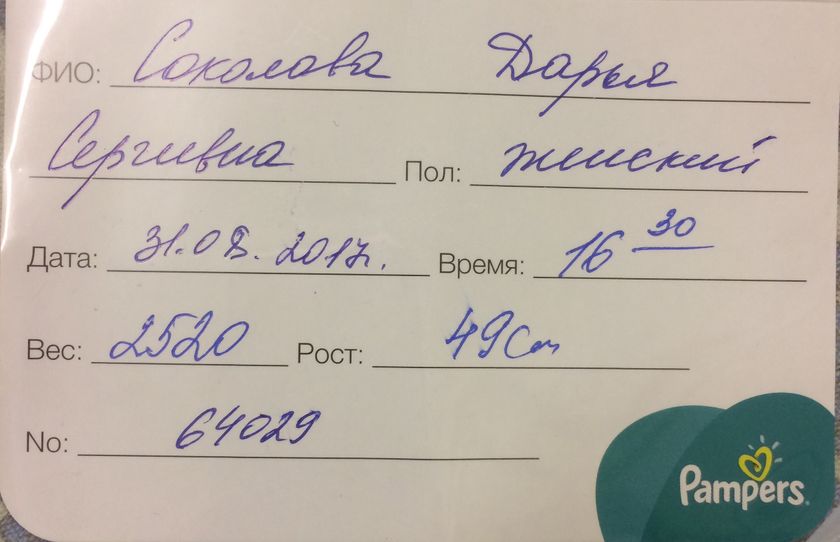 ФИО: Соколова Дарья
Сергеевна Пол: женский
Дата: 31.08.2017. Время: 16 30
Вес: 2520 Рост: 49см
No: 64029
Pampers